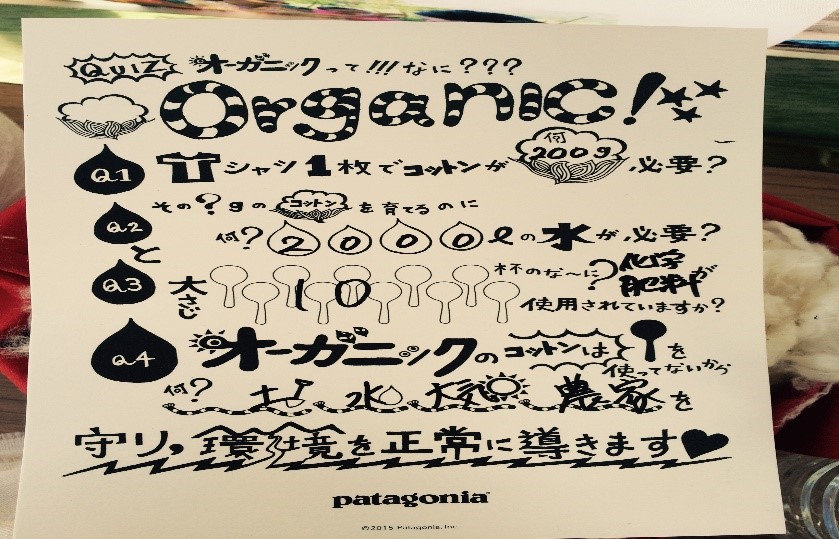 QUIZ オーガニックって!!!なに???
Organic!
Q.1 Tシャツ1枚でコットンが 何200g 必要?
Q2 その?gのコットンを育てるのに
何?2000ℓの水が必要?
と
Q3 大さじ 10 杯のな〜に?化学肥料が
使用されていますか?
Q4 オーガニックのコットンは を
使ってないから
何? 土 水 大気 農家を
守り,環境を正常に導きます
patagonia
©2015 Patagonia, Inc.